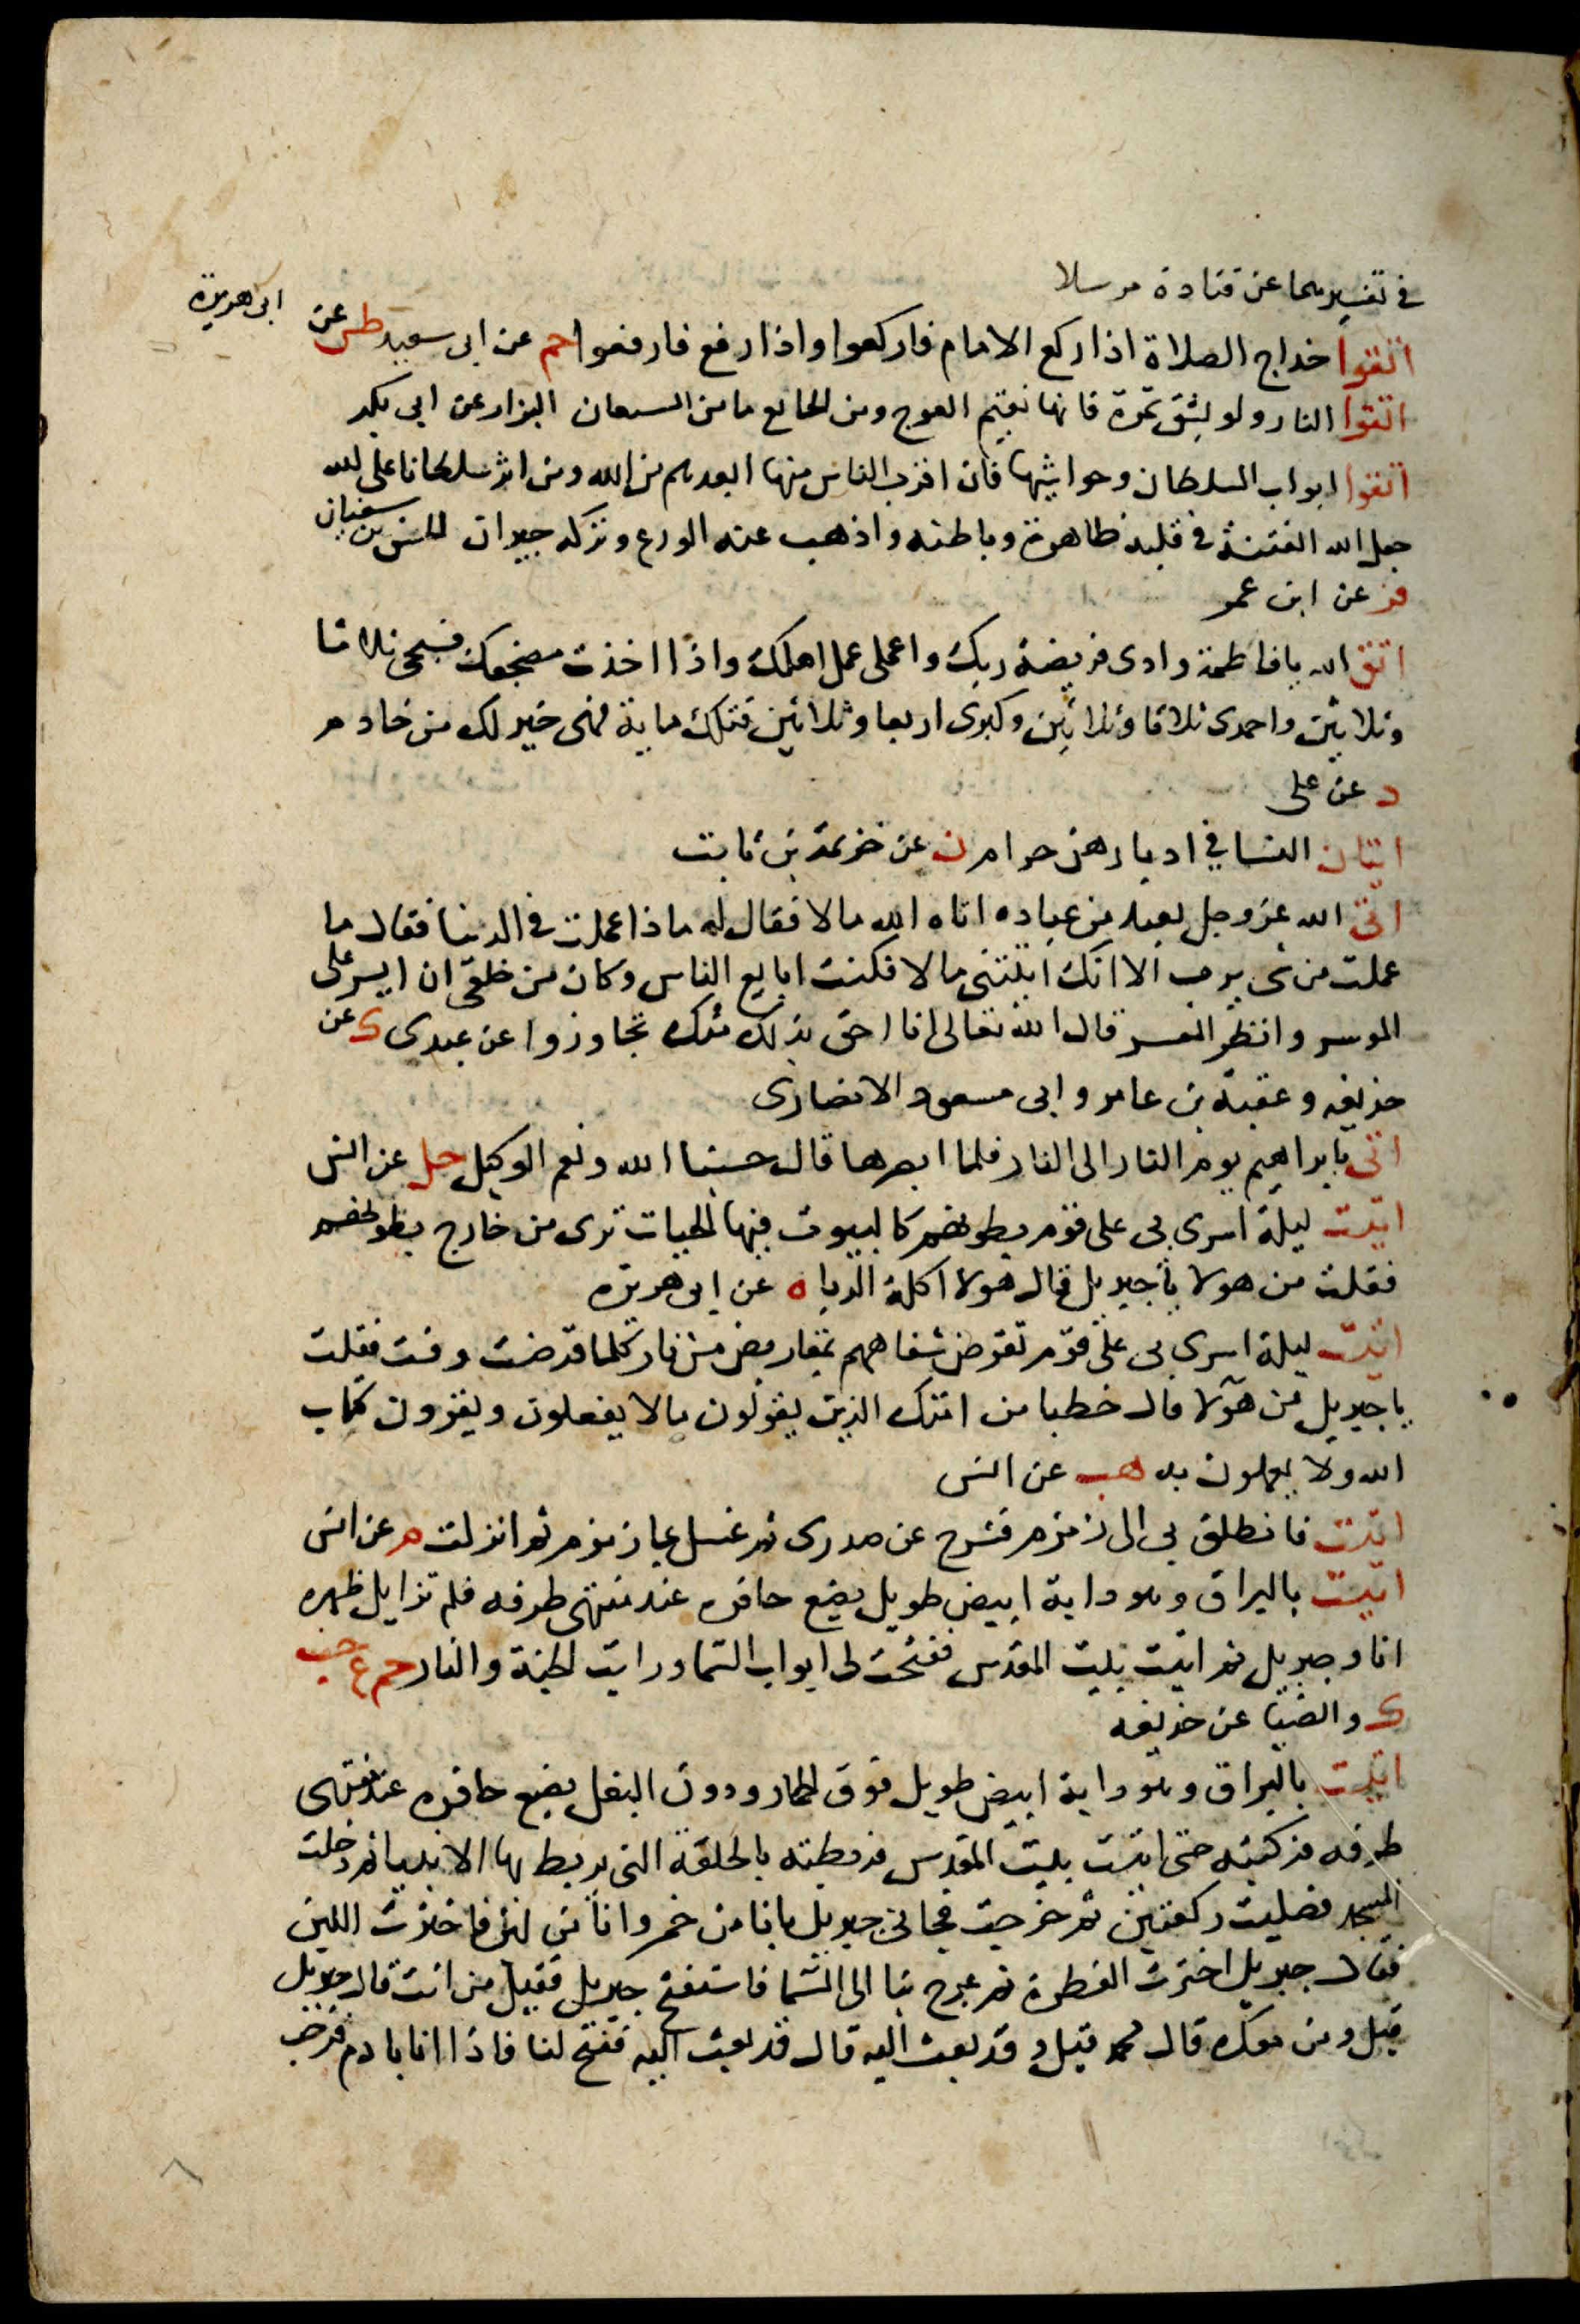 في تفسيرهما عن قتادة مرسلا
اتقوا خداج الصلاة اذا ركع الامام فاركعوا واذا رفع فارفعوا حم عن ابى سعيد طس عن ابى هريرة
اتقوا النار ولو بشق تمرة فانها تقيم العوج ومن الجايع ما من الشبعان البزار عن ابي بكر
اتقوا ابواب السلطان وحواشيها فان اقرب الناس منها ابعدهم من الله ومن اثر سلطانا على الله
جعل الله الفتنة في قلبه ظاهرة وباطنه واذهب عنه الورع وتركه حيران الحسن بن سفيان
فر عن ابن عمر
اتق الله يا فاطمة وادى فريضة ربك واعملى عمل اهلك واذا اخذت مضجعك فسبحى ثلاثا
وثلاثين واحمدى ثلاثا وثلاثين وكبرى اربعا وثلاثين فتلك ماية فهى خير لك من خادم
د عن على
اتيان النسا في ادبارهن حرام ن عن خزيمة بن ثابت
اتى الله عز وجل بعبد من عباده اتاه الله مالا فقال له ماذا عملت في الدنيا فقال ما
عملت من شى يرب الا انك اتيتنى مالا فكنت ابايع الناس وكان من خلقى ان ايسر على
الموسر وانظر المعسر قال الله تعالى انا احق بذلك منك تجاوزوا عن عبدى ك عن
حذيفه وعقبة بن عامر وابى مسعود الانصارى
اتى بابراهيم يوم النار الى النار فلما ابصرها قال حسبنا الله ونعم الوكيل حل عن انس
اتيت ليلة اسرى بى على قوم بطونهم كالبيوت فيها الحيات ترى من خارج بطونهم
فقلت من هولا يا جبريل قال هولا اكلة الربا ه عن ابى هريره
اتيت ليلة اسرى بى على قوم تقرض شفاههم بمقاريض من نار كلما قرضت وفت فقلت
يا جبريل من هولا قال خطبا من امتك الذين يقولون ما لا يفعلون ويقرون كتاب
الله ولا يعملون به هب عن انس
اتيت فانطلق بى الى زمزم فشرح عن صدرى ثم غسل بما زمزم ثم انزلت م عن انس
اتيت بالبراق وهو دابة ابيض طويل يضع حافره عند منتهى طرفه فلم نزايل ظهره
انا وجبريل ثم اتيت بيت المقدس ففتحت لى ابواب السما ورايت الجنة والنار حم ع حب
ك والضيا عن حذيفه
اتيت بالبراق وهو دابة ابيض طويل فوق الحمار ودون البغل يضع حافره عند منتهى
طرفه فركبته حتى اتيت بيت المقدس فربطته بالحلقة التى يربط بها الانبيا ثم دخلت
المسجد فصليت ركعتين ثم خرجت فجانى جبريل بانا من خمر وانا من لبن فاخترت اللبن
فقال جبريل اخترت الفطرة ثم عرج بنا الى السما فاستفتح جبريل فقيل من انت قال جبريل
قيل ومن معك قال محمد قيل وقد بعث اليه قال قد بعث اليه ففتح لنا فاذا انا بادم فرحب